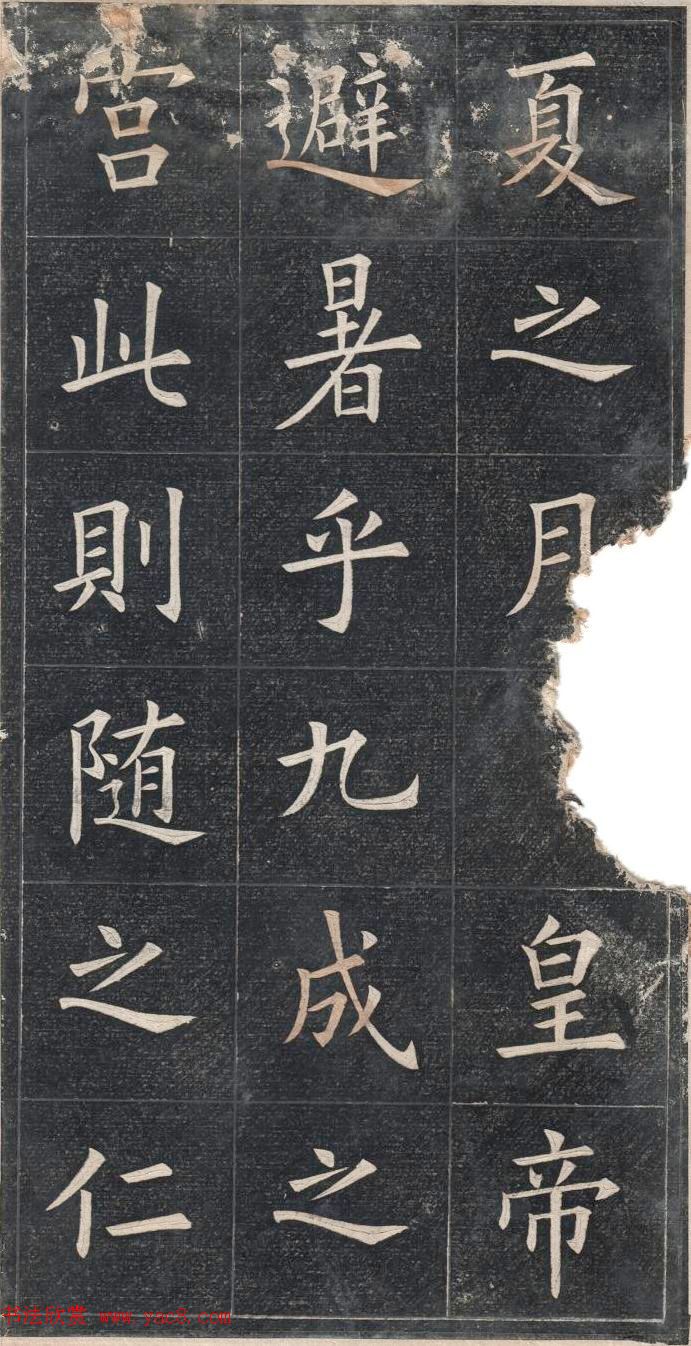 夏之月皇帝
避暑乎九成之
宫此則随之仁
书法欣赏 www.yac8.com